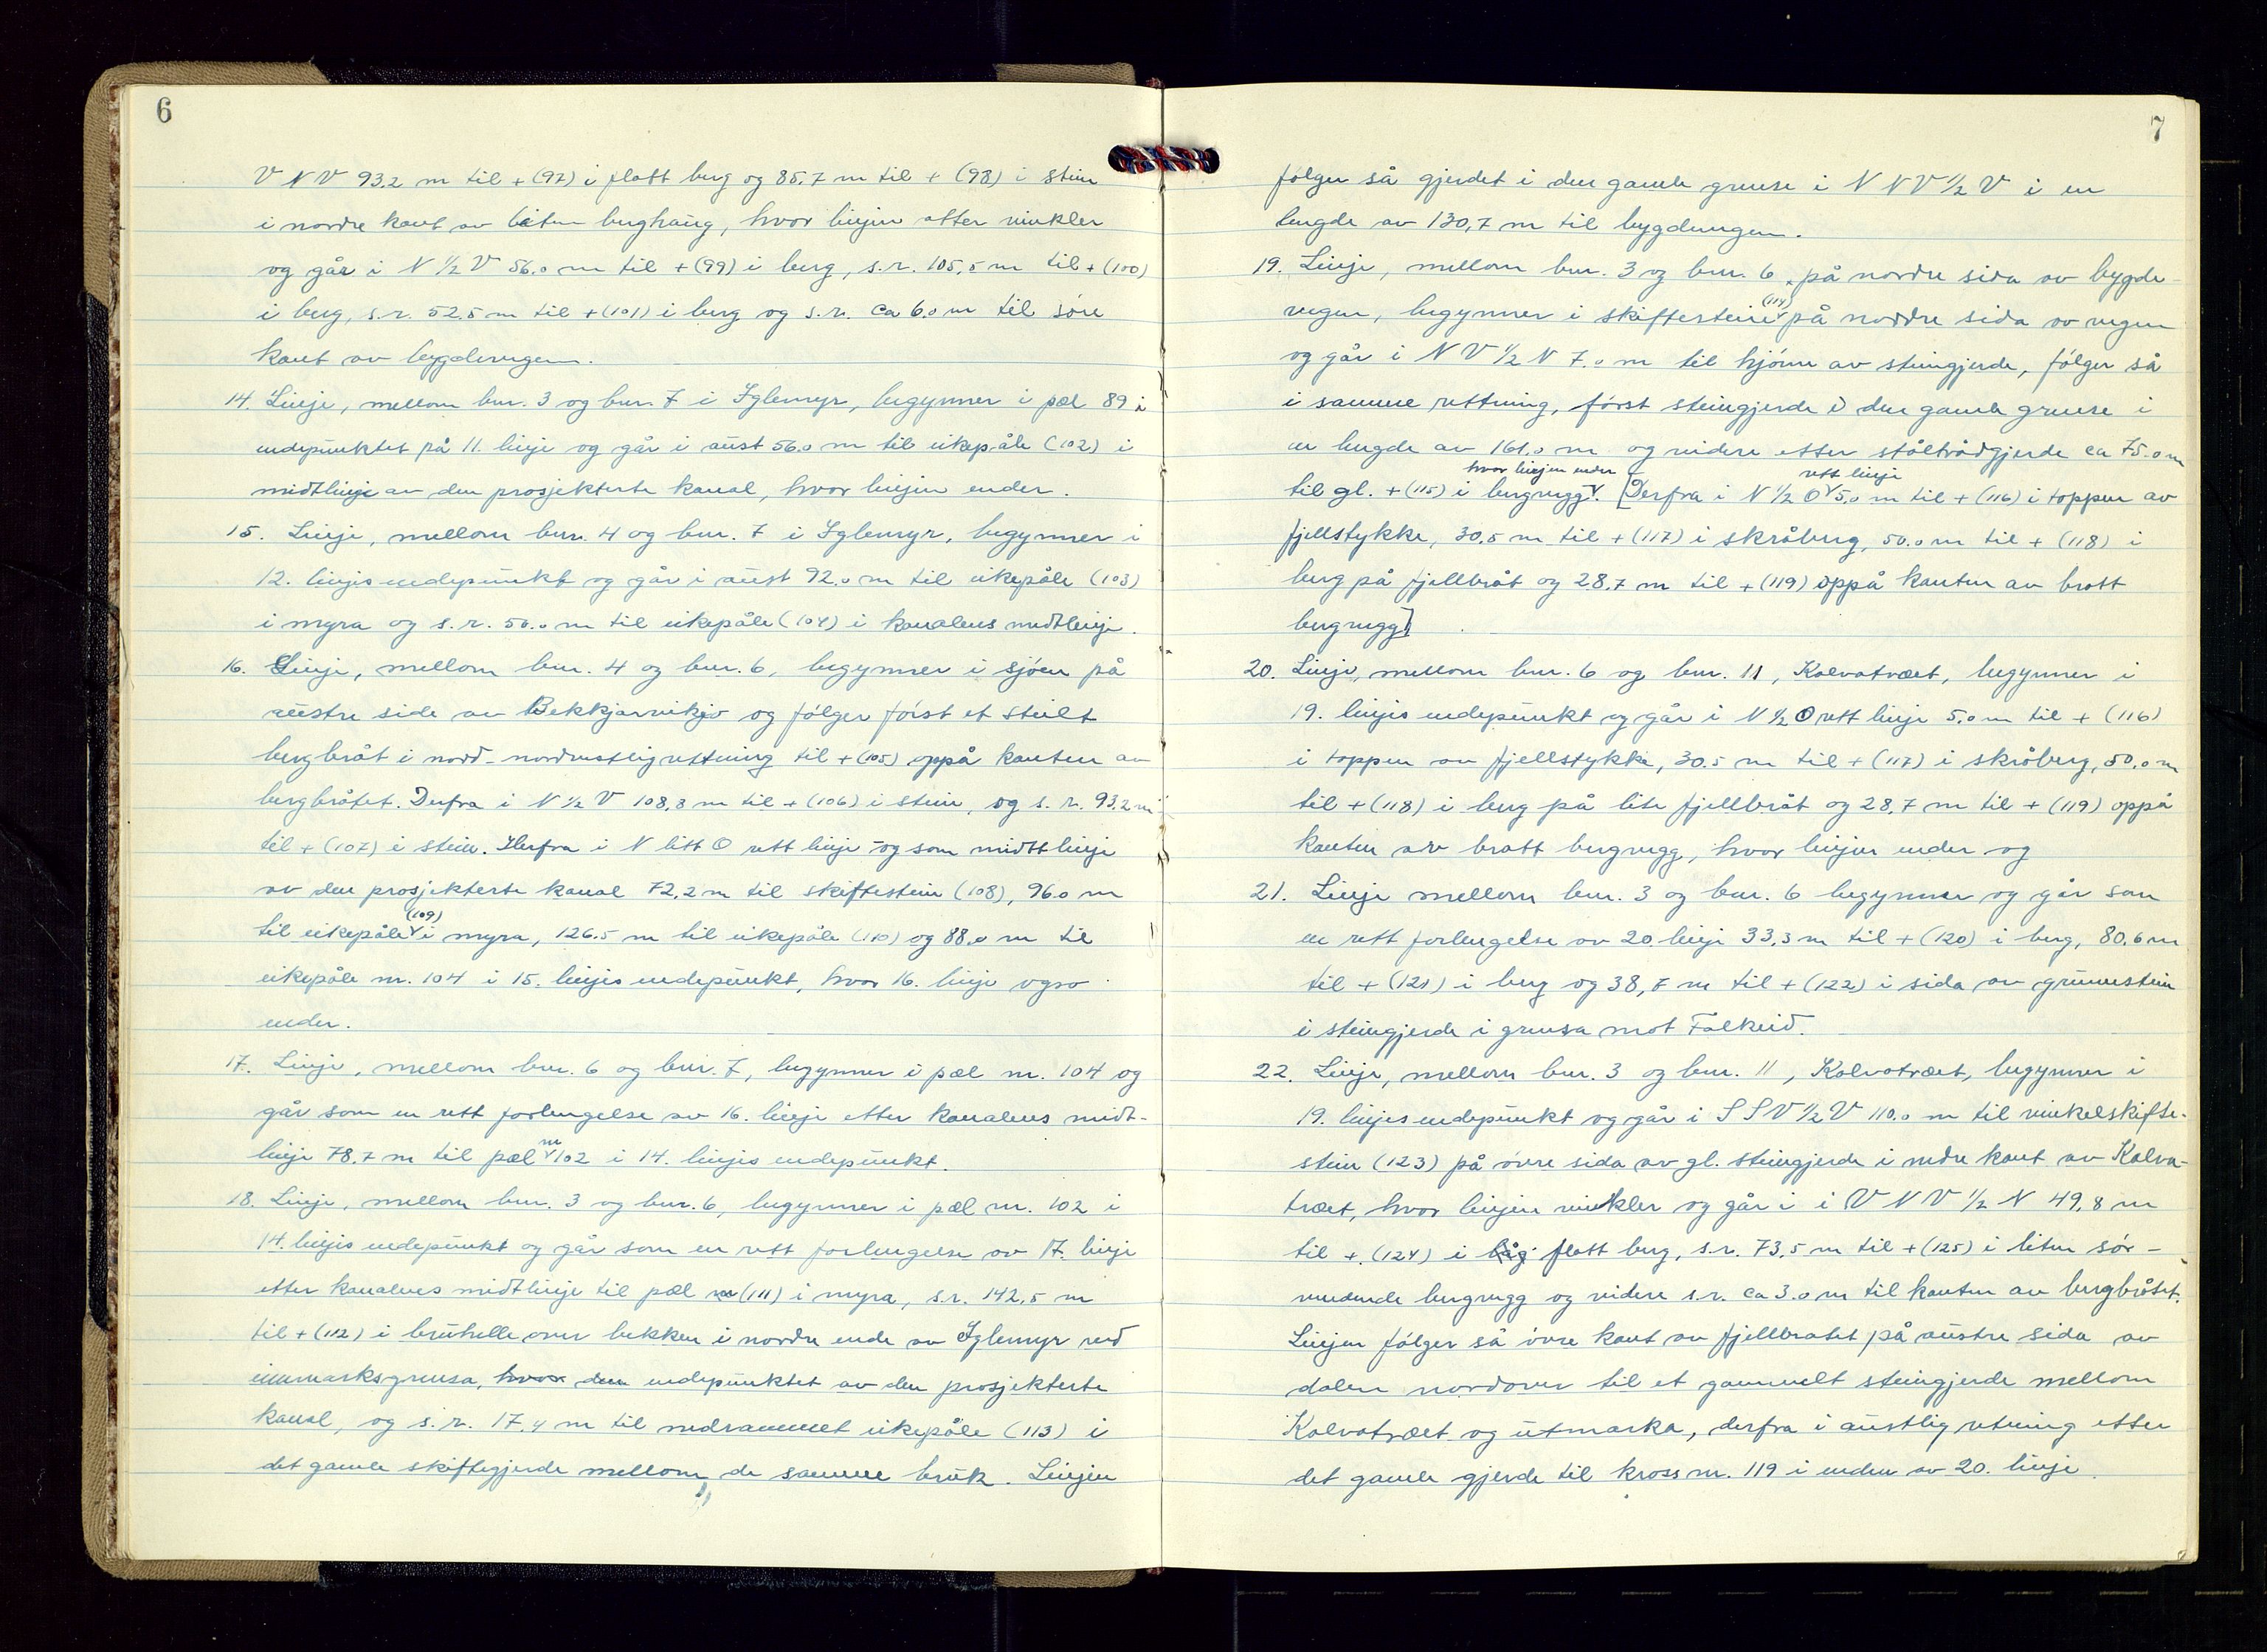 6
V N V 93,2 m til + (97) i flatt berg og 85,7 m til + (98) i stein
i nordre kant av liten berghaug, hvor linjen atter vinkler
og går i N 1/2 V 56.0 m til + (99) i berg, s.r. 105,5 m til + (100)
i berg, s.r. 52.5 m til + (101) i berg og s.r. ca 6.0 m til søre
kant av bygdevegen.
14. Linje, mellom bnr. 3 og bnr. 7 i Iglemyr, begynner i pæl 89 i
endepunktet på 11. linje og går i aust 56.0 m til eikepåle (102) i
midtlinje av den prosjekterte kanal, hvor linjen ender.
15. Linje, mellom bnr. 4 og bnr. 7 i Iglemyr, begynner i
12. linjes endepunkt og går i aust 92.0 m til eikepåle (103)
i myra og s.r. 50.0 m til eikepåle (104) i kanalens midtlinje.
16. Linje, mellom bnr. 4 og bnr. 6, begynner i sjøen på
austre side av Bekkjarvikjo og følger først et steilt
bergbråt i nord-nordvestlig rettning til + (105) oppå kanten av
bergbråtet. Derfra i N 1/2 V 108,8 m til + (106) i stein, og s.r. 93,2 m
til + (107) i stein. Herfra i N litt O rett linje og som midtlinje
av den prosjekterte kanal 72,2 m til skiftestein (108), 96.0 m
til eikepåle (109) i myra, 126.5 m til eikepåle (110) og 88.0 m til
eikepåle nr. 104 i 15. linjes endepunkt, hvor 16. linje ogso
ender.
17. Linje, mellom bnr. 6 og bnr. 7, begynner i pæl nr. 104 og
går som en rett forlengelse av 16. linje etter kanalens midt-
linje 78.7 m til pæl nr 102 i 14. linjes endepunkt.
18. Linje, mellom bnr. 3 og bnr. 6, begynner i pæl nr. 102 i
14. linjes endepunkt og går som en rett forlengelse av 17. linje
etter kanalens midtlinje til pæl (111) i myra, s.r. 142,5 m
til + (112) i bruhelle over bekken i nordre ende av Iglemyr ved
innmarksgrensa, hvor den endepunktet av den prosjekterte
kanal, og s.r. 17,4 m til nedrammet eikepåle (113) i
det gamle skiftegjerde mellom de samme bruk. Linjen
7
følger så gjerdet i den gamle grense i N N V 1/2 V i en
lengde av 130,7 m til bygdevegen.
19. Linje, mellom bnr. 3 og bnr. 6, på nordre sida av bygde-
vegen, begynner i skiftestein (114) på nordre sida av vegen
og går i N V 1/2 N 7.0 m til hjørne av steingjerde, følger så
i samme rettning, først steingjerde i den gamle grense i
en lengde av 161.0 m og videre etter ståltrådgjerde ca 75.0 m
til gl. + (115) i bergrygg hvor linjen ender. [Derfra i N 1/2 O rett linje 5,0 m til + (116) i toppen av
fjellstykke, 30,5 m til + (117) i skråberg, 50.0 m til + (118) i
berg på fjellbråt og 28,7 m til + (119) oppå kanten av bratt
bergrygg]
20. Linje, mellom bnr. 6 og bnr. 11, Kalvatræet, begynner i
19. linjes endepunkt og går i N 1/2 O rett linje 5.0 m til + (116)
i toppen av fjellstykke, 30.5 m til + (117) i skråberg, 50.0 m
til + (118) i berg på lite fjellbråt og 28,7 m til + (119) oppå
kanten av bratt bergrygg, hvor linjen ender og
21. Linje mellom bnr. 3 og bnr. 6 begynner og går som
en rett forlengelse av 20. linje 33,3 m til + (120) i berg, 80,6 m
til + (121) i berg og 38,7 m til + (122) i sida av grunnstein
i steingjerde i grensa mot Falkeid.
22. Linje, mellom bnr. 3 og bnr. 11, Kalvatræet, begynner i
19. linjes endepunkt og går i S S V 1/2 V 110.0 m til vinkelskifte-
stein (123) på øvre sida av gl. steingjerde i nedre kant av Kalva-
træet, hvor linjen vinkler og går i i V N V 1/2 N 49,8 m
til + (124) i flatt berg, s.r. 73,5 m til + (125) i liten sør-
vendende bergrygg og videre s.r. ca 3.0 m til kanten av bergbråtet.
Linjen følger så øvre kant av fjellbratet på austre sida av
dalen nordover til et gammelt steingjerde mellom
Kalvatræet og utmarka, derfra i austlig retning etter
det gamle gjerde til kross nr. 119 i enden av 20. linje.